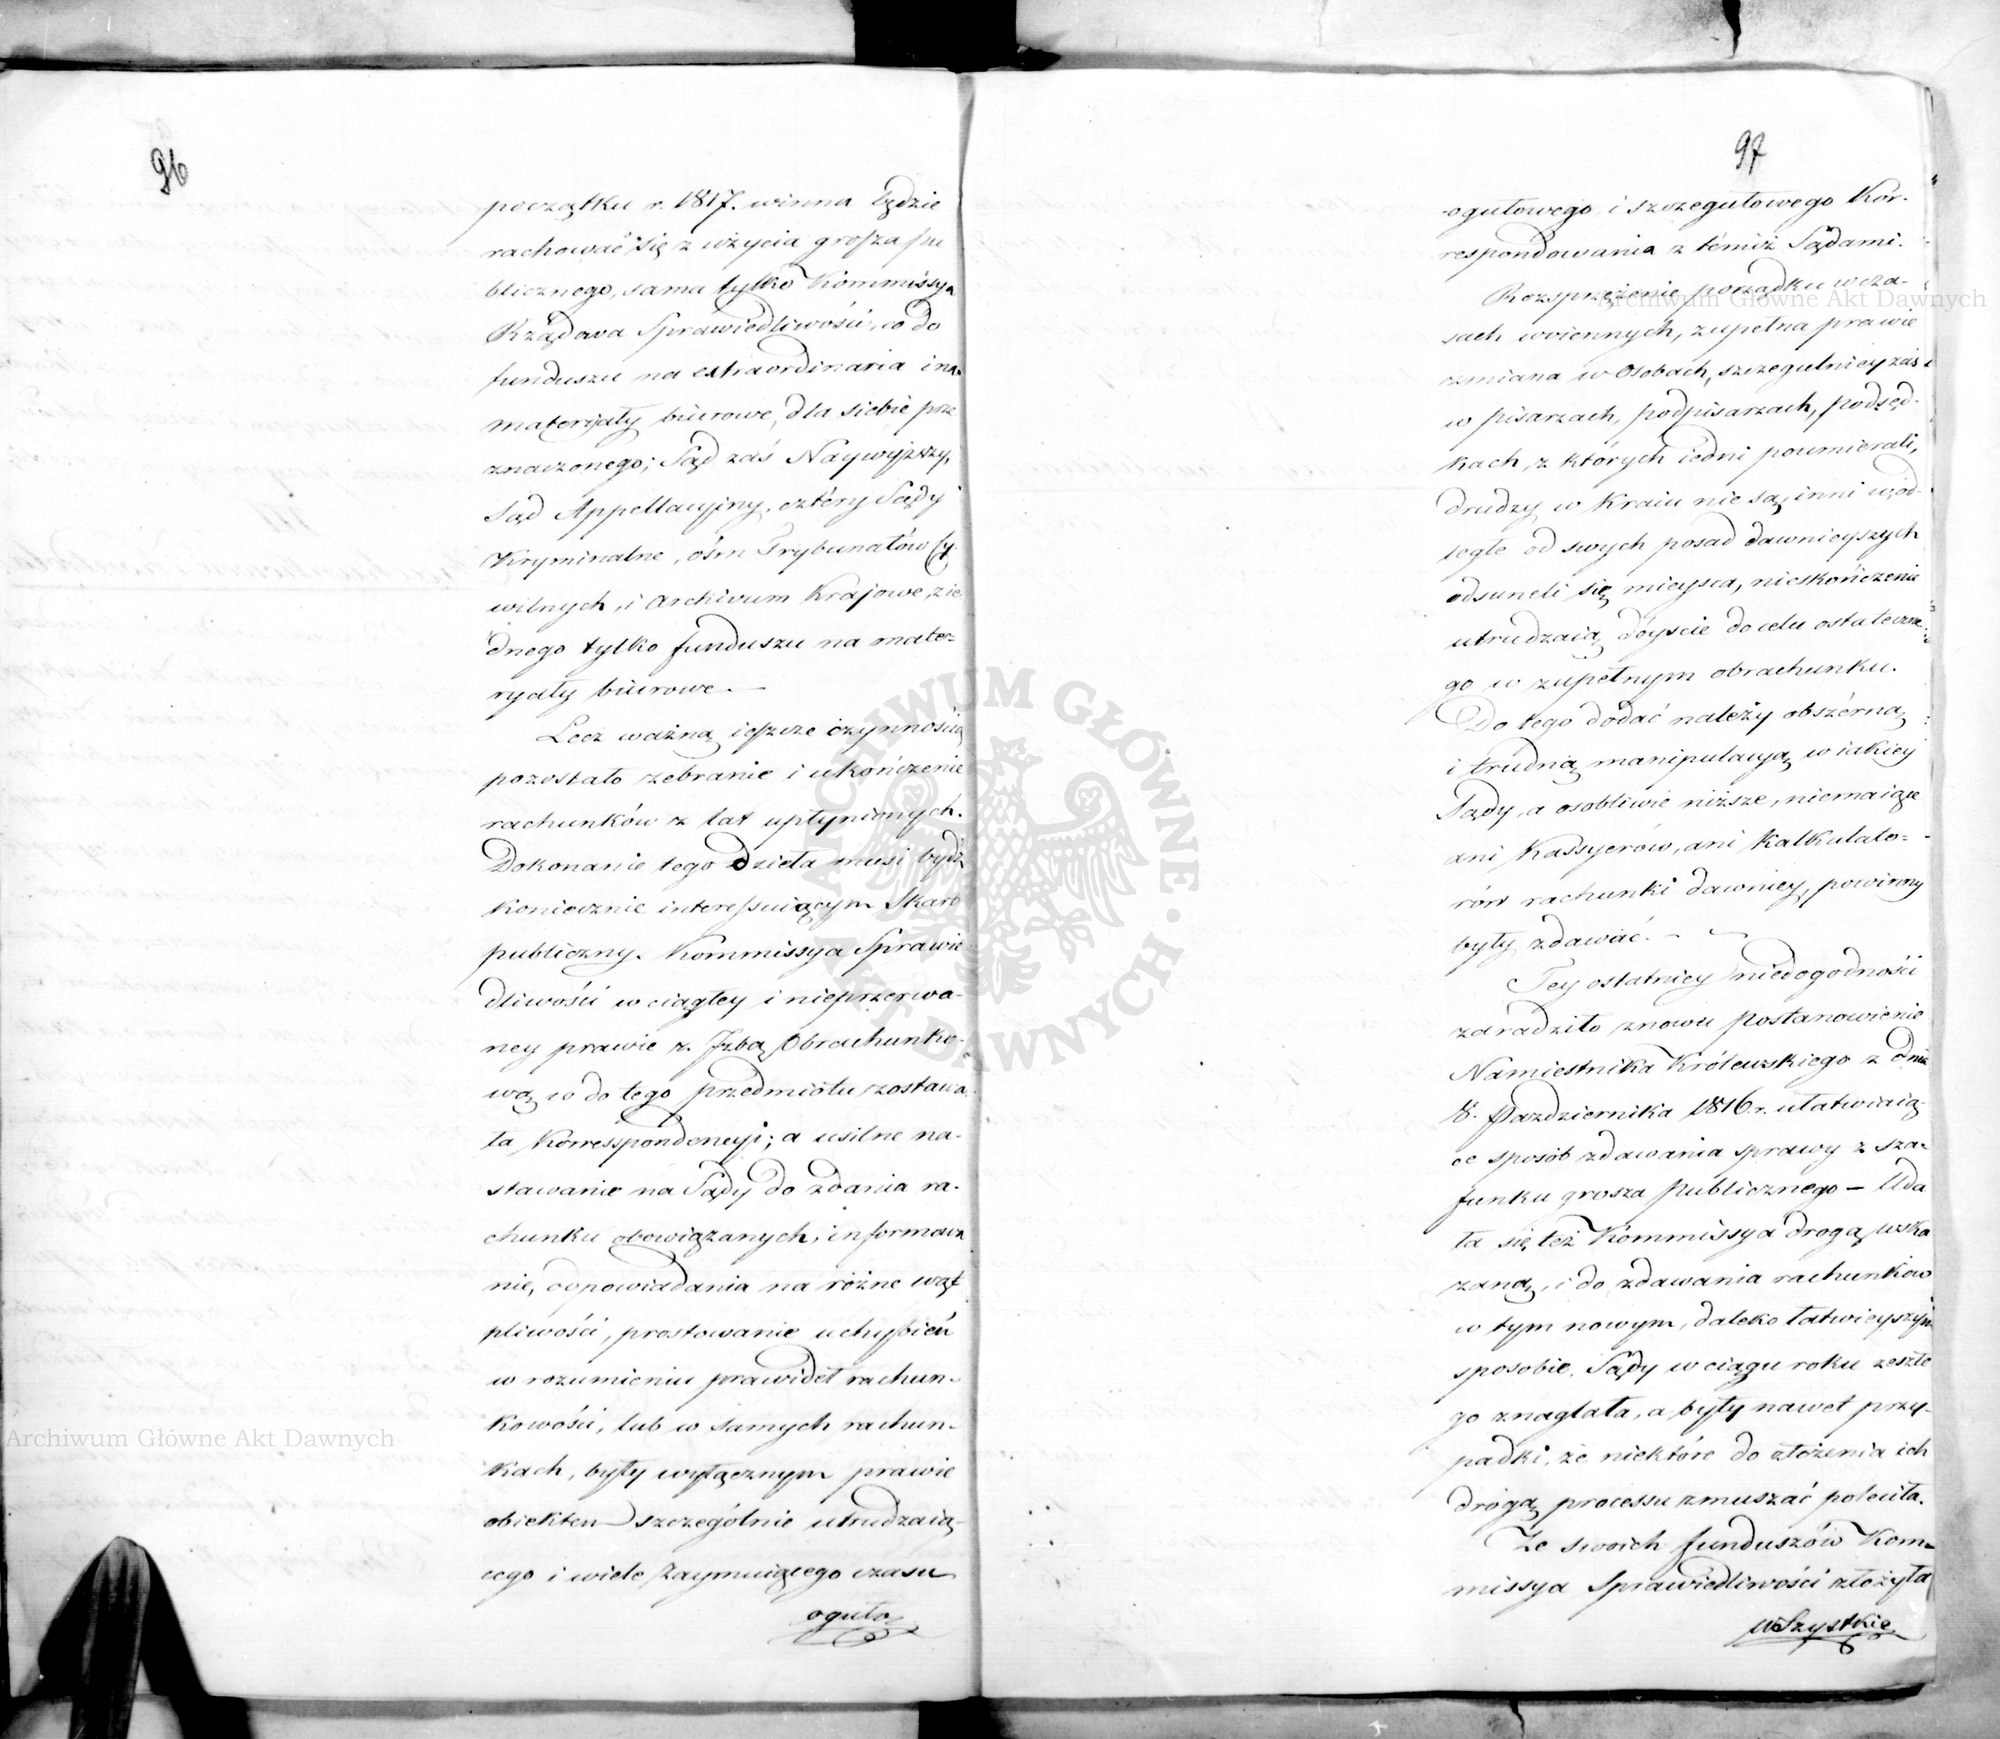 96
początku r. 1817. winna będzie
rachować się z użycia grosza pu
blicznego, sama tylko Kommissya
Rządowa Sprawiedliwości, co do
funduszu na extraordinaria i na
materyały biurowe, dla siebie prze
znaczonego; Sąd zaś Naywyższy,
Sąd Appellacyiny, cztéry Sądy
Kryminalne, ośm Trybunałów Cy
wilnych, i Archivum Krajowe, z ie
dnego tylko funduszu na mate=
ryały biurowe.—
Lecz ważną ieszcze czynnością
pozostało zebranie i ukończenie
rachunków z lat upłynionych.
Dokonanie tego dzieła musi bydź
koniecznie interessuiącym Skarb
publiczny. Kommissya Sprawie
dliwości w ciągłey i nieprzerwa-
ney prawie z Jzbą Obrachunko-
wą co do tego przedmiotu zostawa
ła Korrespondencyi; a usilne na-
stawanie na Sądy do zdania ra-
chunku obowiązanych, informowa
nie, odpowiadania na różne wąt
pliwości, prostowanie uchybień
w rozumieniu prawideł rachun-
kowości, lub w samych rachun-
kach, były wyłącznym prawie
obiektem szczególnie utrudzaią-
cego i wiele zaymuiącego czasu
oguło
97
-ogułowego i szczegułowego Kor-
respondowania z témiż Sądami.
Rozsprzężenie porządku w cza-
sach woiennych, zupełna prawie
zmiana w Osobach, szczegulniey zaś
w pisarzach, podpisarzach, podsęd-
kach, z których iedni poumierali,
drudzy w Kraiu nie są, inni w od-
ległe od swych posad dawnieyszych
odsuneli się mieysca, nieskończenie
utrudzaią dóyście do celu ostateczne-
go w zupełnym obrachunku.
Do tego dodać należy obszérną
i trudną manipulacyą, w iakiey
Sądy, a osobliwie niższe, niemaiące
ani Kassyerów, ani Kalkulato=
rów rachunki dawniey, powinny
były zdawać.—
Tey ostatniey niedogodności
zaradziło znowu Postanowienie
Namiestnika Królewskiego z dnia
8. Października 1816 r. ułatwiaią-
ce sposób zdawania sprawy z sza-
funku grosza Publicznego — Uda
ła się też Kommissya drogą wska
zaną, i do zdawania rachunków
w tym nowym, daleko łatwieyszym
sposobie, Sądy w ciągu roku zeszłe
go znaglała, a były nawet przy-
padki, że niektóre do złożenia ich
drogą processu zmuszać poleciła.
Ze swoich funduszów Kom=
missya Sprawiedliwości złożyła
wszystkie
Archiwum Główne Akt Dawnych
Archiwum Główne Akt Dawnych
ARCHIWUM GŁÓWNE • AKT DAWNYCH •